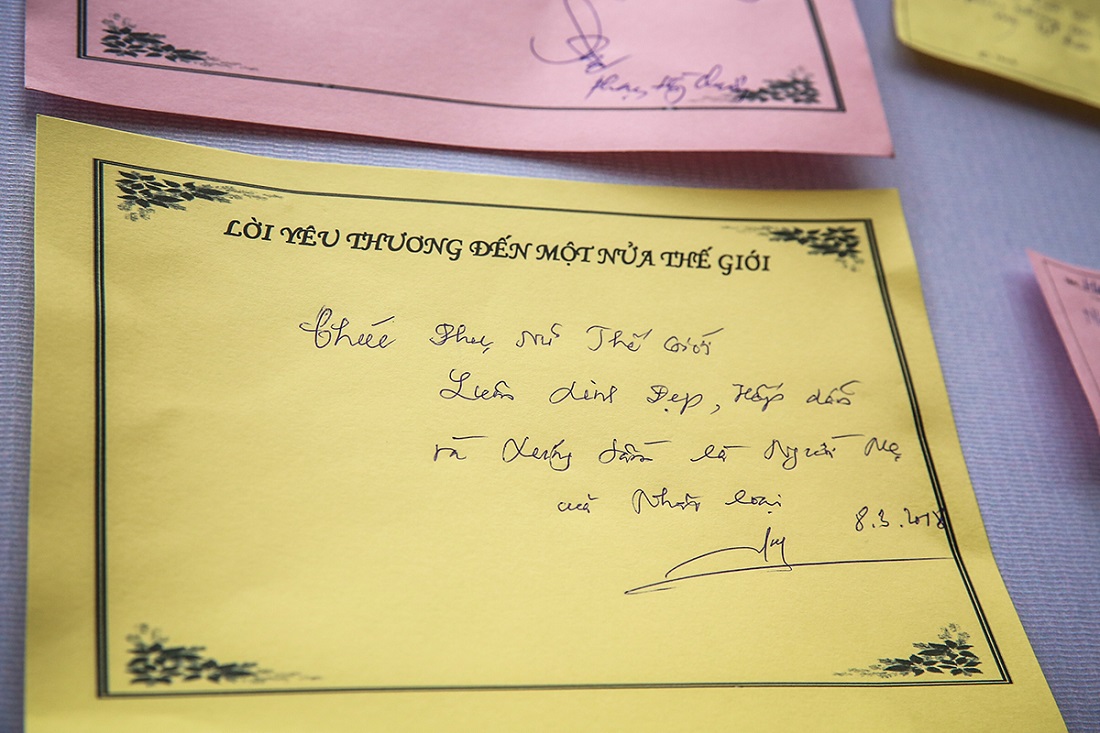 LỜI YÊU THƯƠNG ĐẾN MỘT NỬA THẾ GIỚI
Chúc Phụ Nữ Thế Giới
Luôn Xinh Đẹp, Hấp dẫn
và Xứng đáng là Người Mẹ
của Nhân loại
8.3.2018